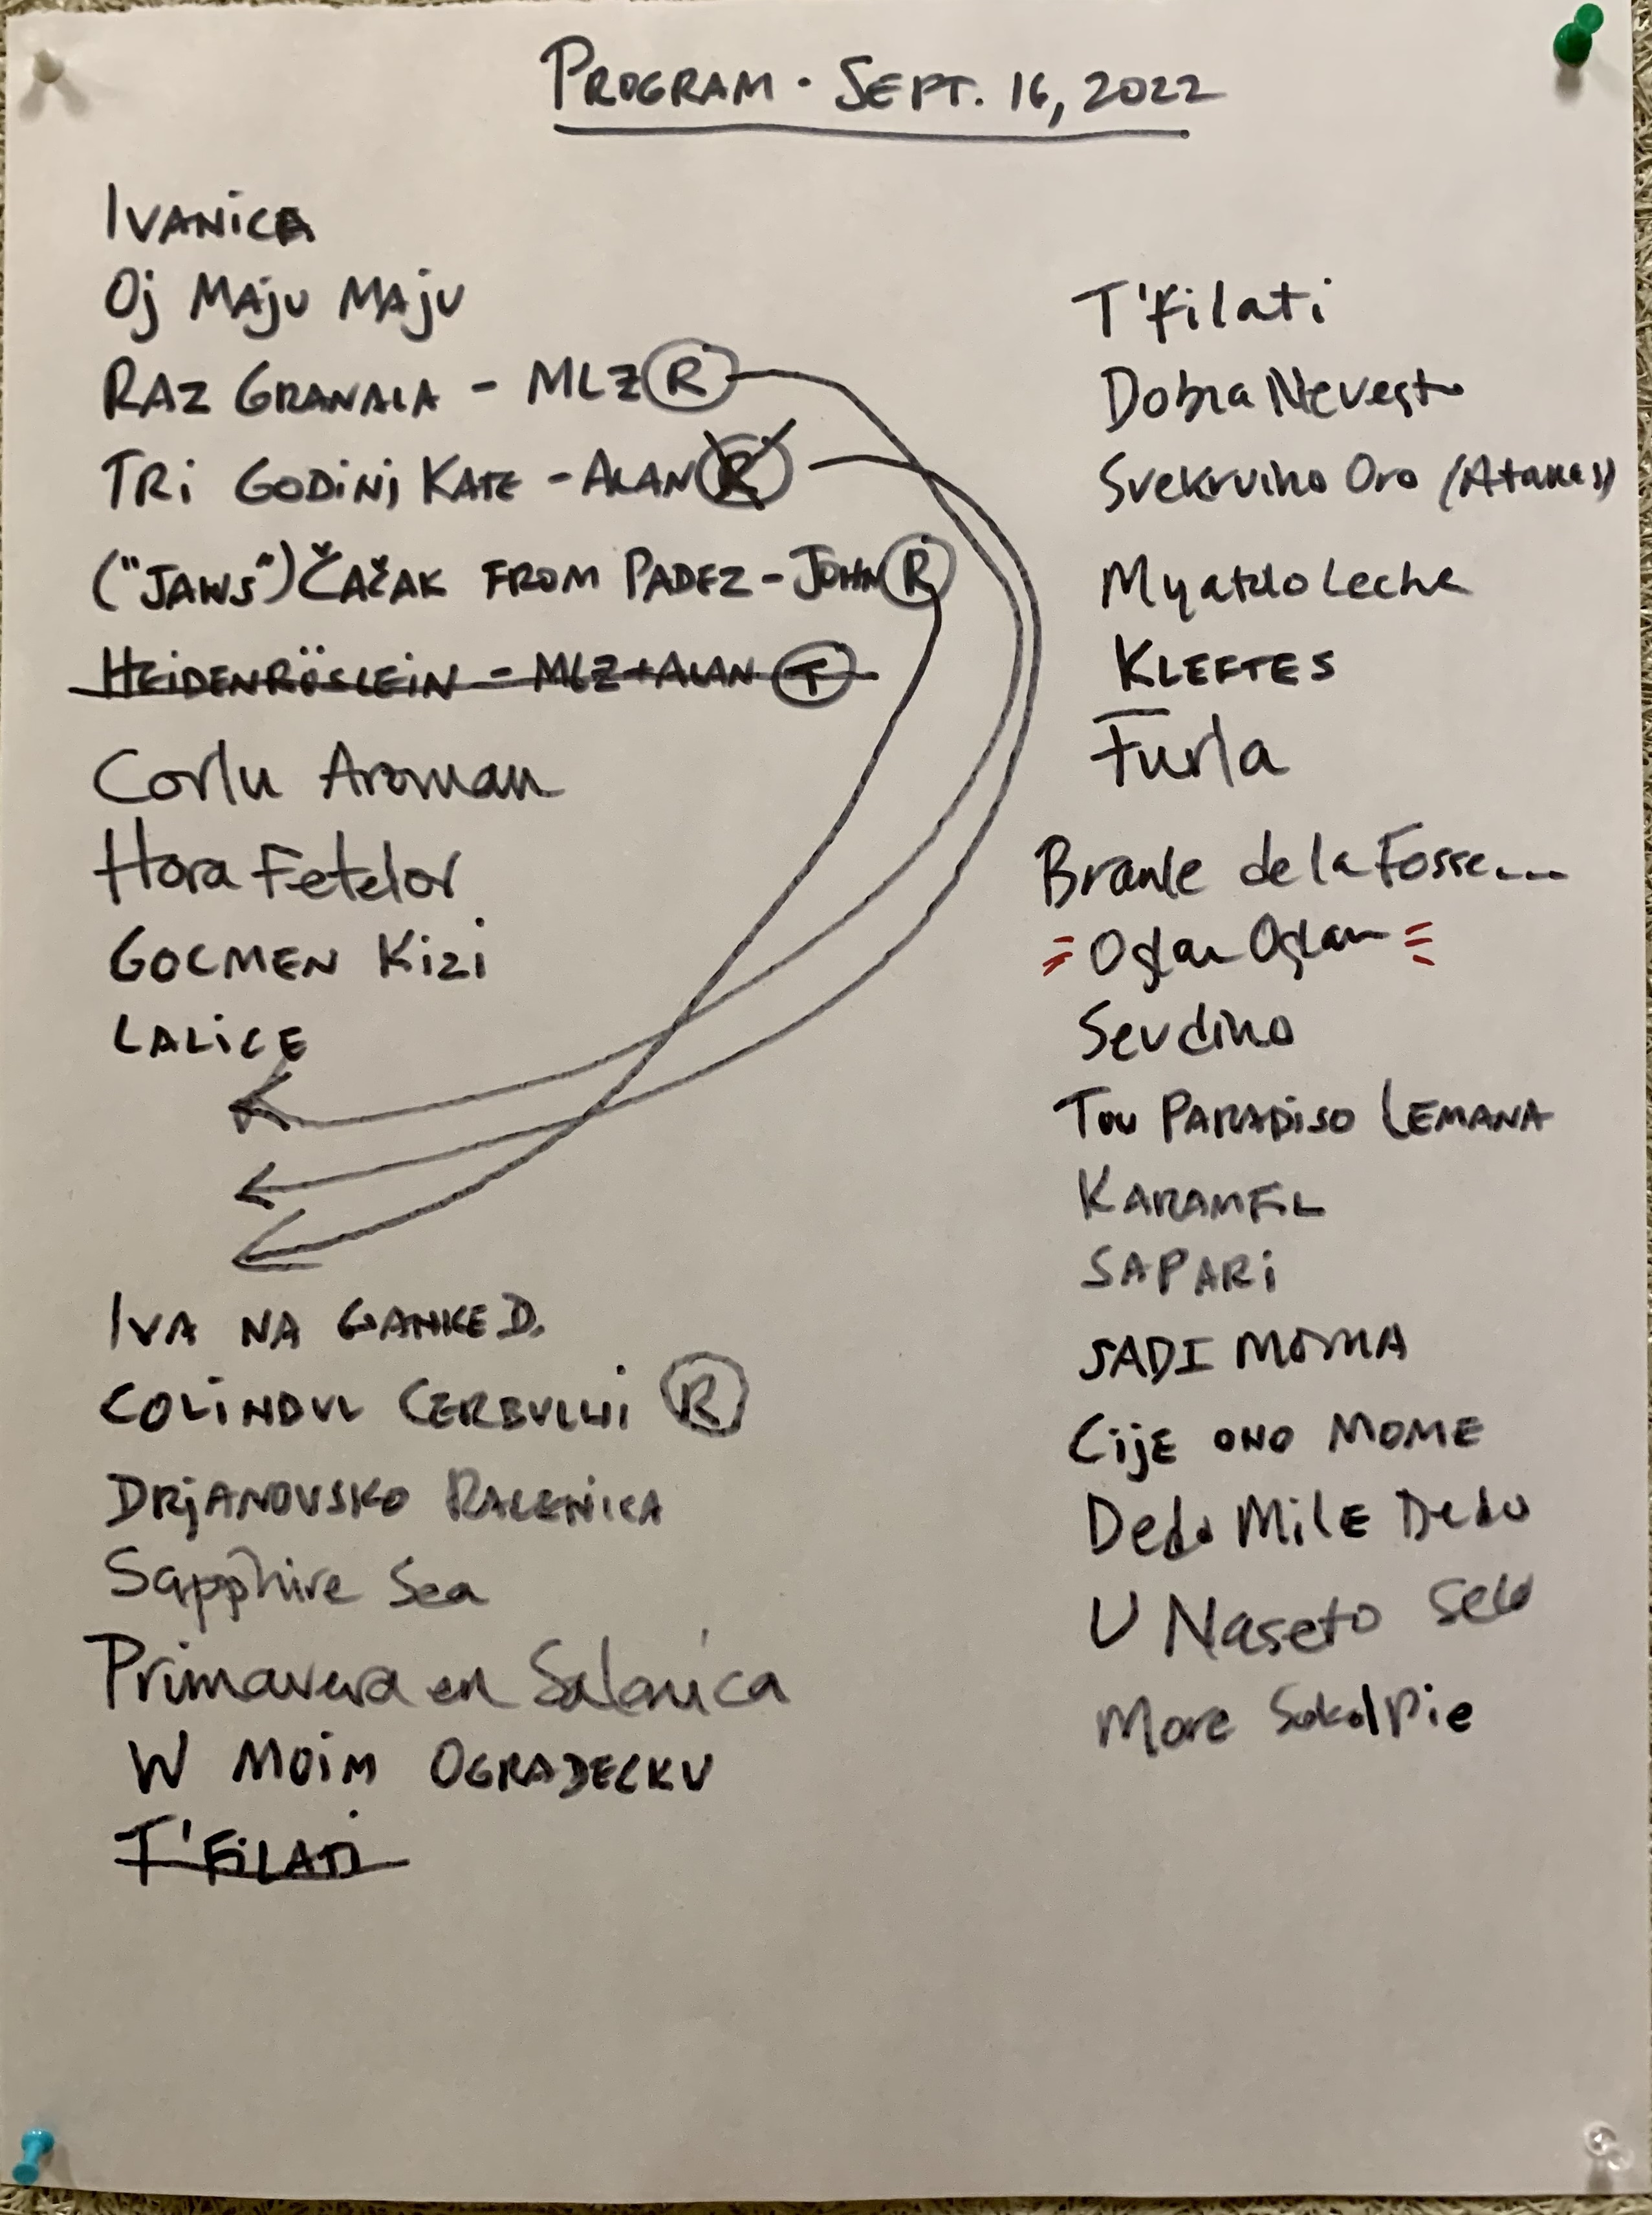 PROGRAM · SEPT. 16, 2022
IVANICA
Oj MAJU MAJU
RAZ GRANALA - MLZ R
TRI GODINI KATE - ALAN R
("JAWS") ČAČAK FROM PADEZ - JOHN R
HEIDENRÖSLEIN - MLZ + ALAN T
Corlu Aroman
Hora Fetelor
GOCMEN KIZI
LALICE
IVA NA GANKE D.
COLINDUL CERBULUI R
DRJANOVSKO RACENICA
Sapphire Sea
Primavera en Salonica
W MOIM OGRADECKU
T'FILATI
T'filati
Dobra Nevesto
Svekrvino Oro (Atanas)
Myatalo Lecha
KLEFTES
Furla
Branle de la Fosse...
Oglan Oglan
Sevdino
Tou PARADISO LEMANA
KARAMFIL
SAPARI
SADI MOMA
CIJE ONO MOME
Dedo MilE Dedo
U Naseto Selo
More Sokol Pie